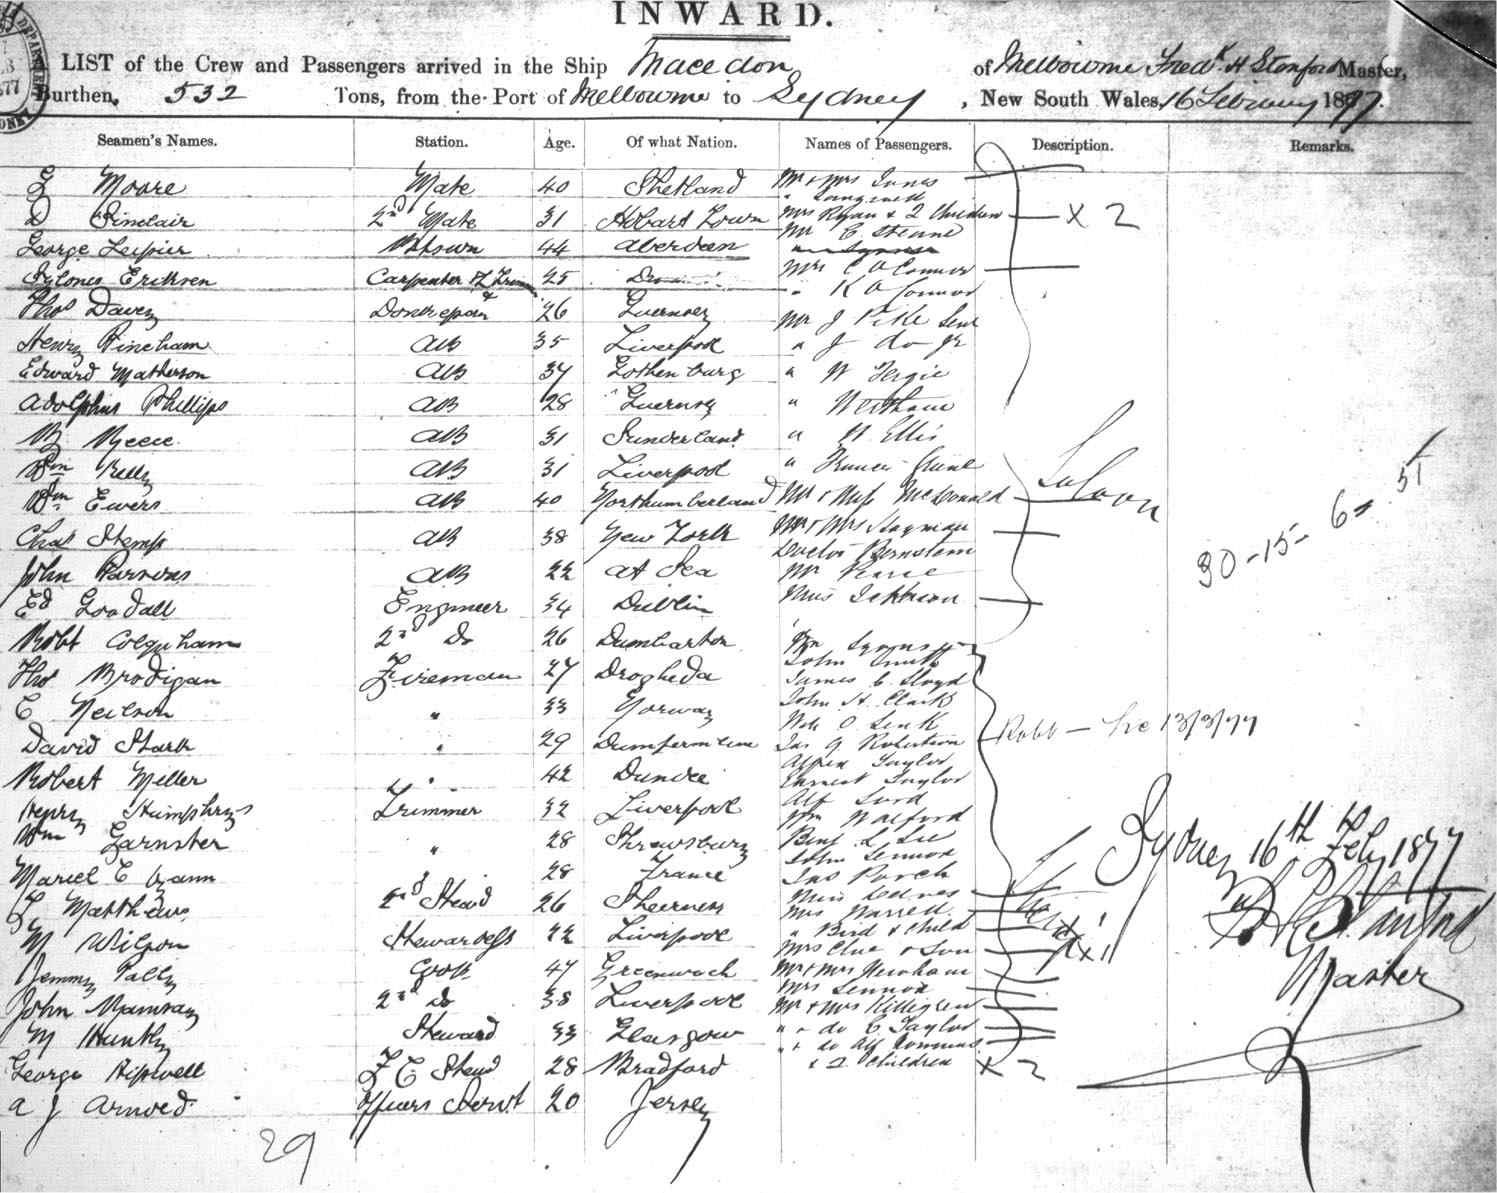 INWARD.
A LIST of the Crew and Passengers arrived in the Ship Macedon of Melbourne Fredk H Stanford Master,
Burthen, 532 Tons, from the Port of Melbourne to Sydney, New South Wales, 16 February 1877.
Seamen's Names. Station. Age. Of what Nation. Names of Passengers. Description. Remarks.
Moore Mate 40 Shetland Mr & Mrs Innes
D Sinclair 2nd Mate 31 Hobart Town Mrs Ryan & 2 Children x 2
George 44 Aberdeen Mr C Steane
Eriksen Carpenter & 25 Mrs C O Connor
" K O Connor
Thos Davey Donkeyman 26 Guernsey Mr J Pike Senr
Henry Hincham AB 35 Liverpool " J do Jr
Edward Matherson AB 37 Gothenburg " W Fergie
Adolphus Phillips AB 28 Guernsey "
Reece AB 31 Sunderland " H Ellis
Wm Kelly AB 31 Liverpool " Francis
Saloon
Wm Ewers AB 40 Northumberland Mr & Miss McDonald
Chas Stemp AB 38 New York Mr & Mrs Hayman
Doctor Bernstein
John Parsons AB 22 at Sea Mr Pearce
30-15-6= 51
Ed Goodall Engineer 34 Dublin Miss
Robt Colquham 2nd Do 26 Dumbarton
John Smith
Thos Brodigan Fireman 27 Drogheda James C Lloyd
John H. Clark
C Neilson " 33 Norway
David Stark " 29 Dumfermline Jas G Robertson
Robb — 13/3/77
Alfred Taylor
Robert Miller " 42 Dundee Earnest Taylor
Alf Lord
Henry Humphrys Trimmer 32 Liverpool Wm Walford
Sydney 16th Feby 1877
Wm Garnster " 28 Shrewsbury Benj L Lee
John Lennox
Marcel C 28 France Jas Porch
Miss
Matthews 2nd Stewd 26 Sheerness Mrs Warrell
H Stanford
M Wilson Stewardess 42 Liverpool " Bird & Child
Mrs Clue & Son
Master
Jemmy Pally Cook 47 Greenwich Mr & Mrs Newham
Mrs Lennox
John 2nd do 38 Liverpool Mr & Mrs Killigrew
M Steward 33 Glasgow " " do C Taylor
" " do Alf
George Hipwell F C Stewd 28 Bradford & 2 Children x 2
A J Arnold Officers Servt 20 Jersey
29